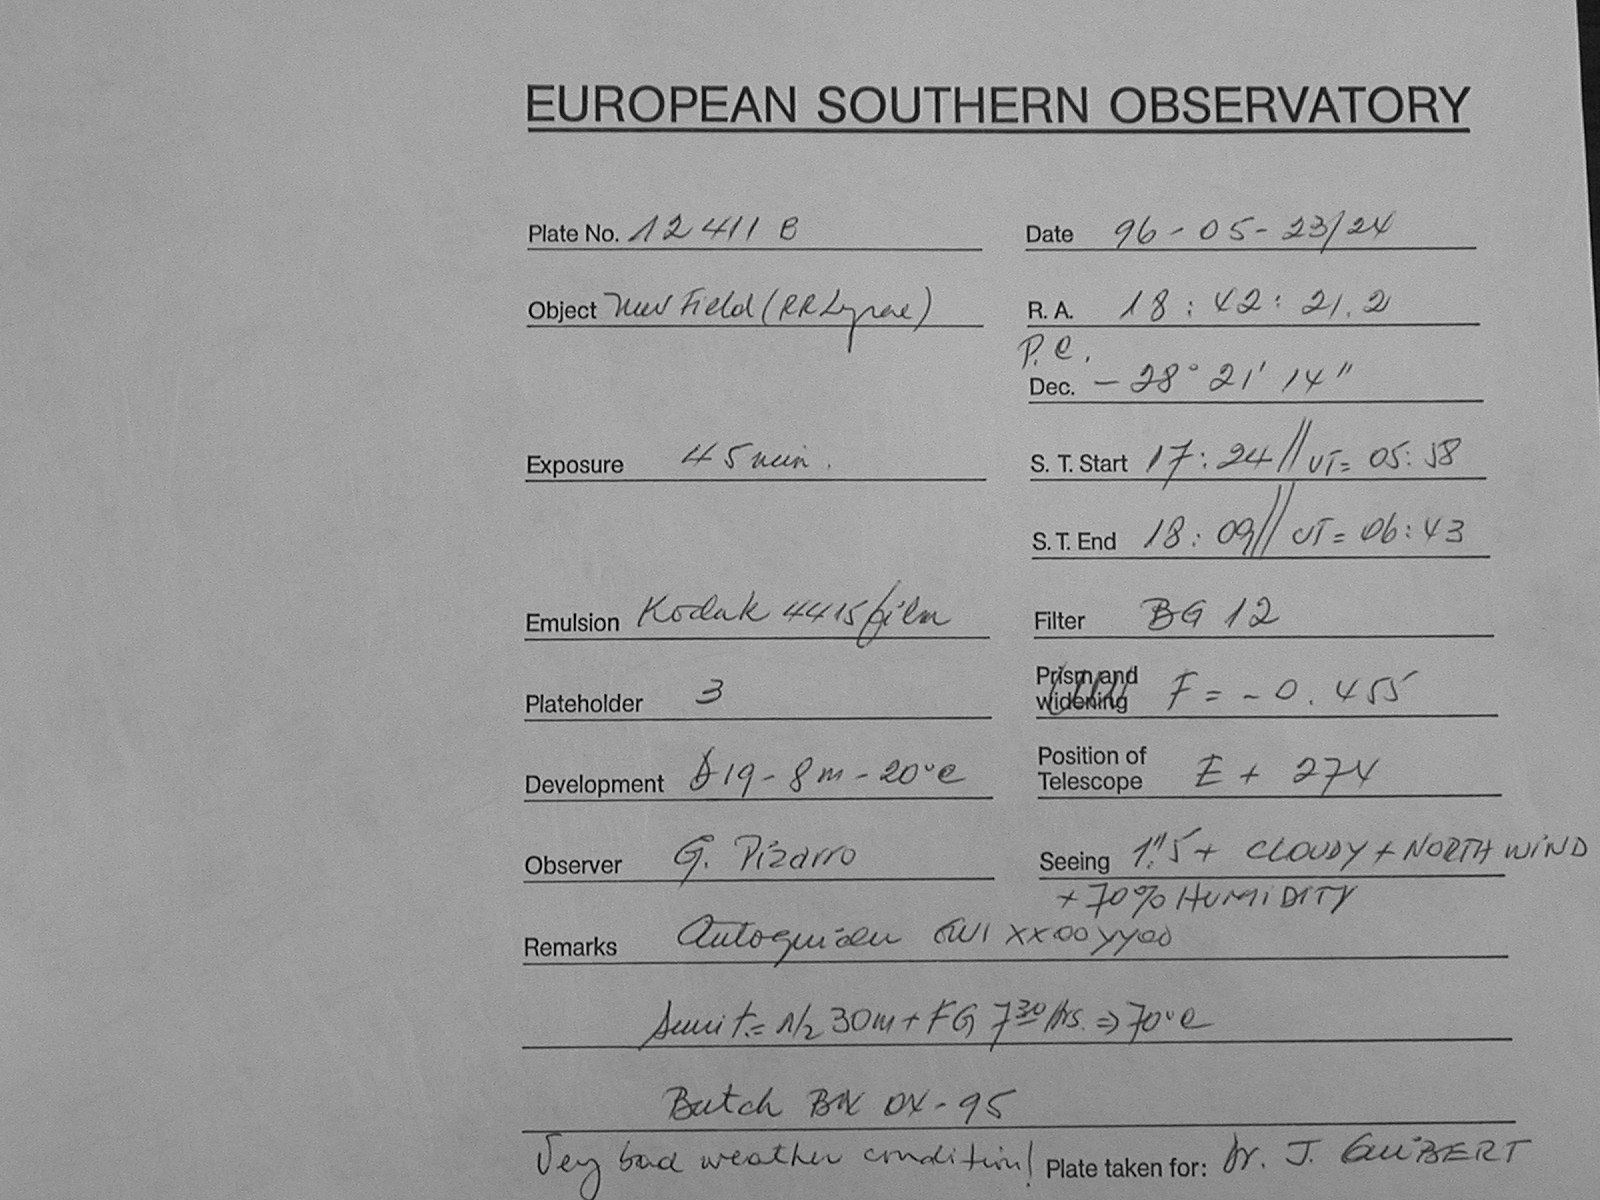 EUROPEAN SOUTHERN OBSERVATORY
Plate No. 12411 B Date 96-05-23/24
Object New Field (RR Lyrae) R. A. 18 : 42 : 21.2
P.C.
Dec. - 28° 21' 14"
Exposure 45 min. S. T. Start 17:24 // UT= 05:58
S. T. End 18:09 // UT= 06:43
Emulsion Kodak 4415 film Filter BG 12
Plateholder 3 Prism and widening F = -0.455
Development D19-8m-20°C Position of Telescope E + 274
Observer G. Pizarro Seeing 1".5 + CLOUDY + NORTH WIND
+ 70% HUMIDITY
Remarks Autoguider XX00YY00
30m + FG 7 30 hrs. => 70°C
Batch 0X-95
Very bad weather condition! Plate taken for: Dr. J. GUIBERT